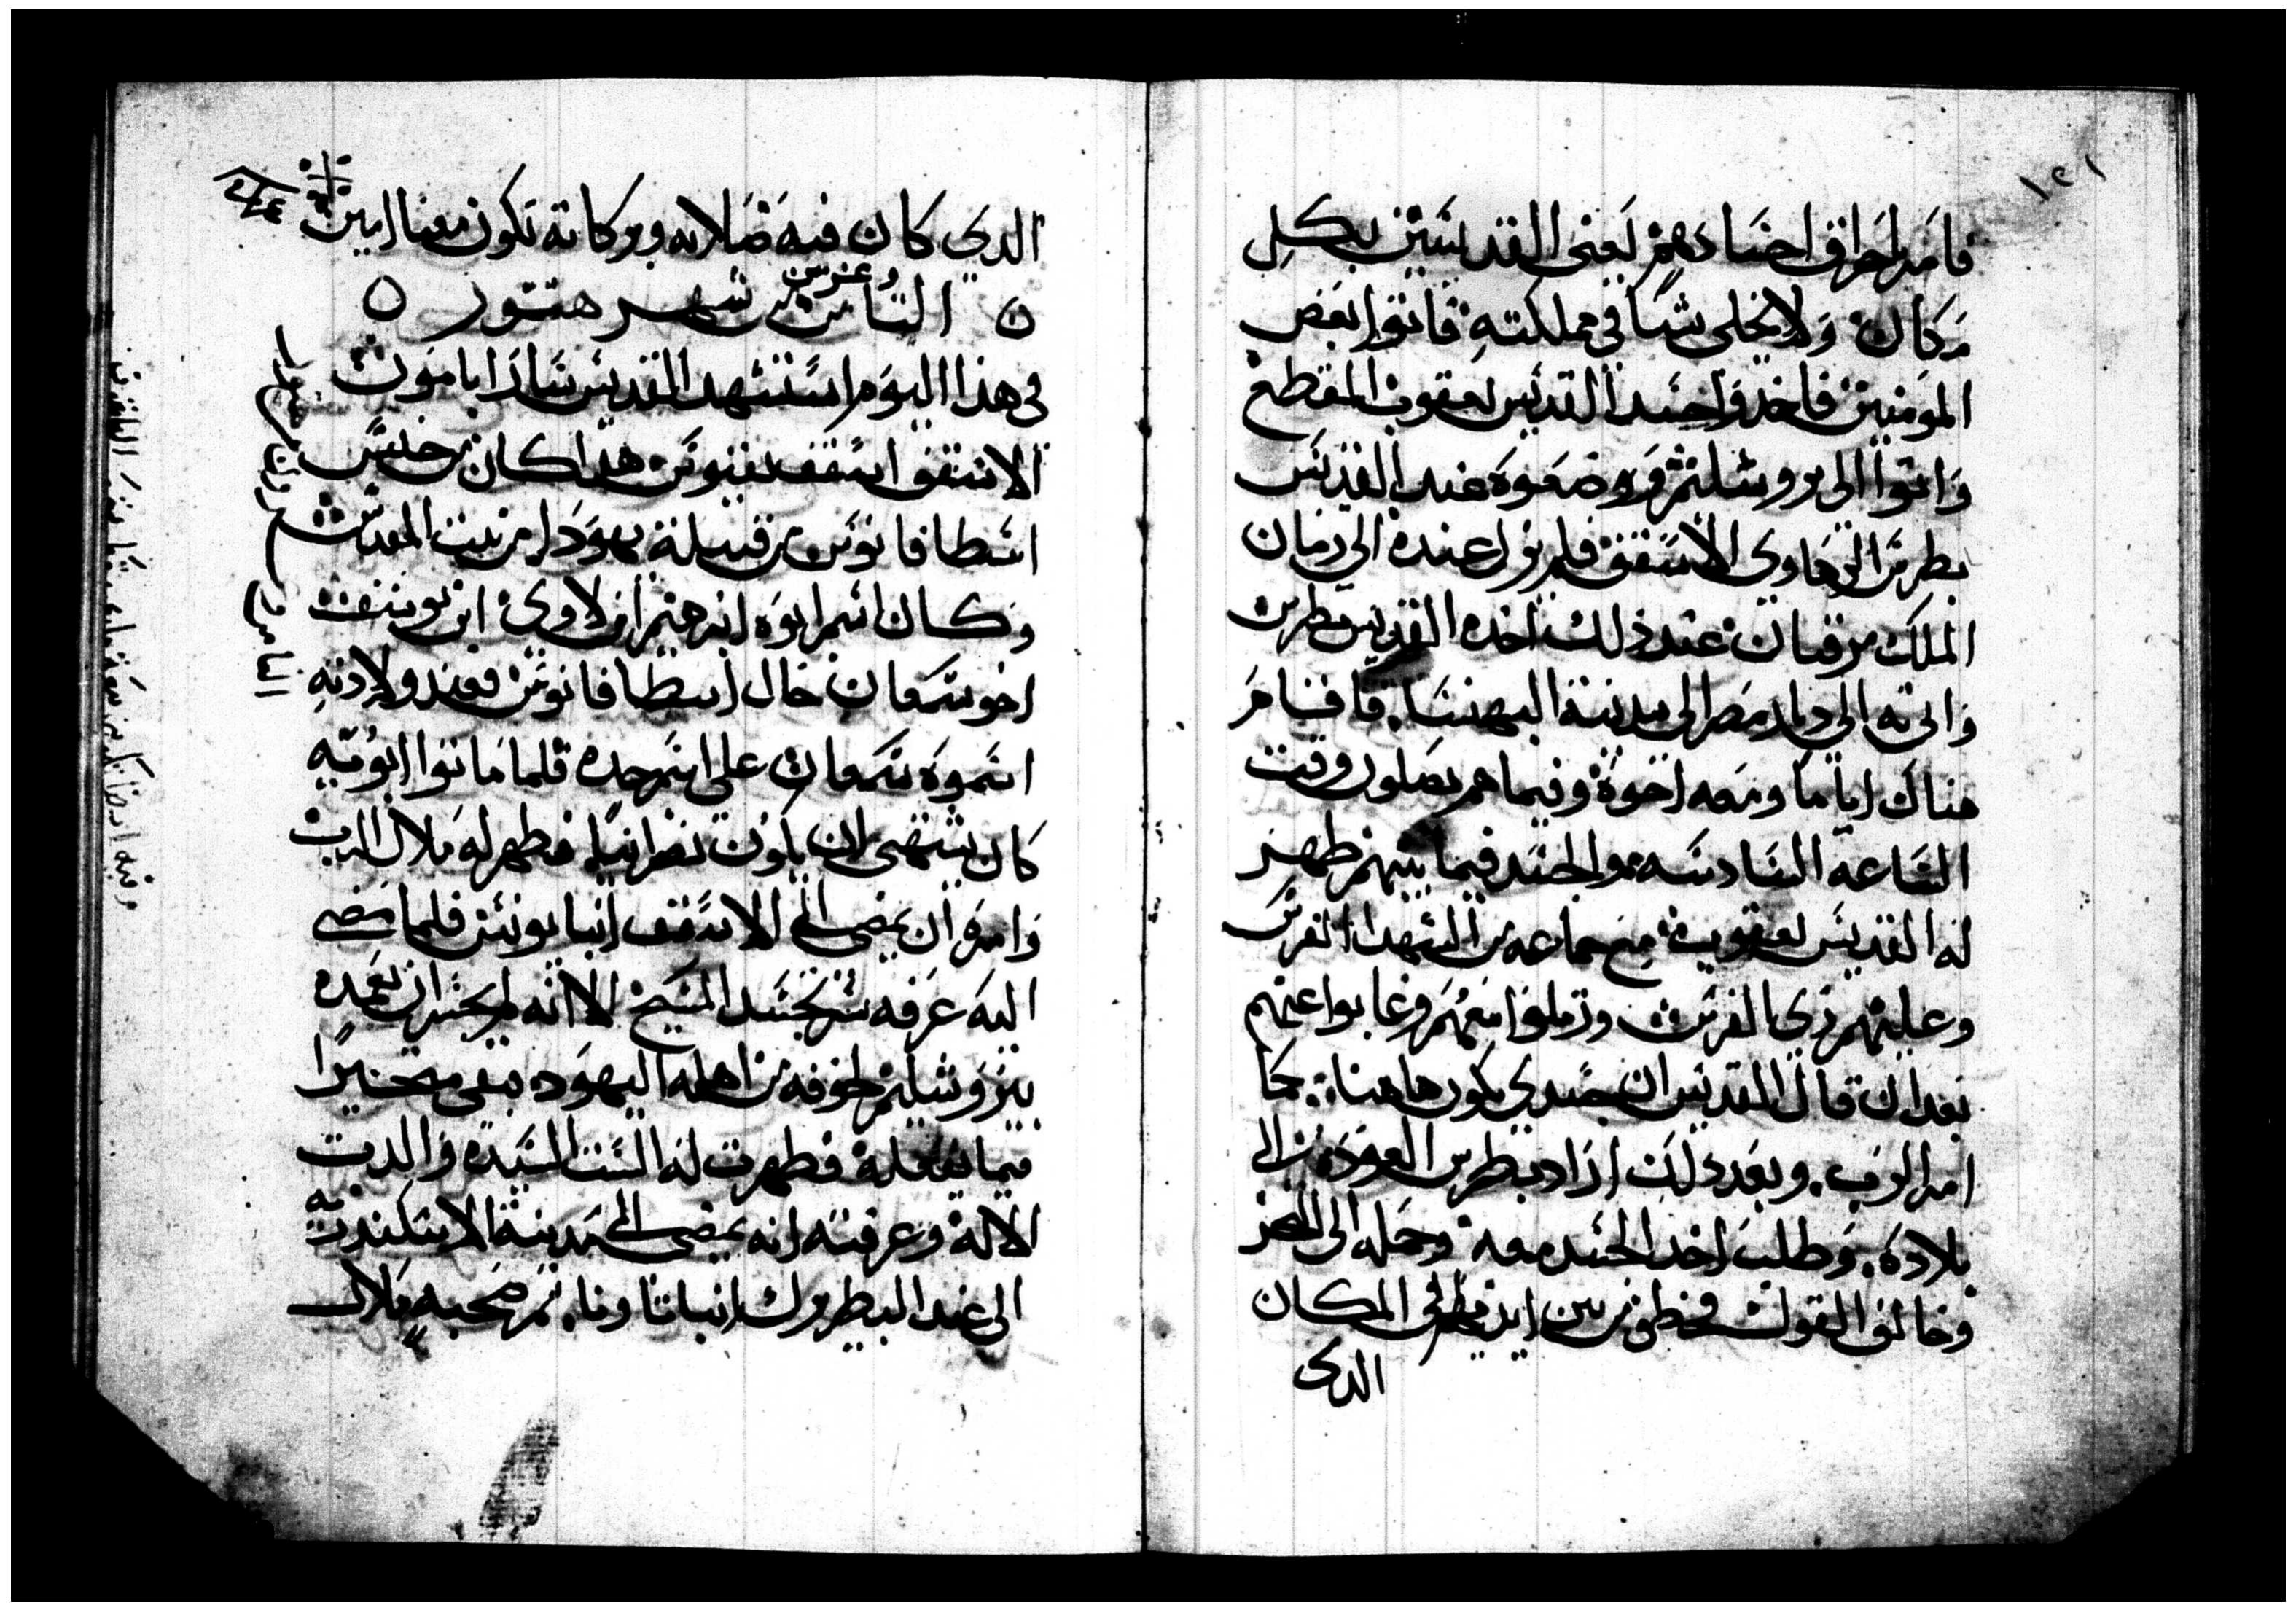 ١٢١
فامر باحراق اجسادهم يعني القديسين بكل
مكان ولا يخلي شيا في مملكته فاتوا بعض
المومنين فاخدوا جسد القديس يعقوب المقطع
واتوا الى يروشليم ووضعوه عند القديس
بطرس الرهاوي الاسقف فلم يزل عنده الى زمان
الملك مرقيان عند ذلك اخده القديس بطرس
واتى به الى ديار مصر الى مدينة البهنسا. فاقام
هناك اياما ومعه اخوة وفيما هم يصلون وقت
الساعة السادسه والجسد فيما بينهم ظهر
له القديس يعقوب مع جماعه من الشهدا الفرس
وعليهم زي الفرس ورتلوا معهم وغابوا عنهم
بعد ان قال القديس ان جسدي يكون هاهنا. كما
امر الرب. وبعد ذلك اراد بطرس العوده الى
بلاده. وطلب اخد الجسد معه وحمله الى البحر
وخالف القول فخطف من بين ايديهم الى المكان
الدي
الدي كان فيه صلاته وبركاته تكون معنا امين
الثامن وعشرين شهر هتور
في هذا اليوم استشهد القديس سارابامون
الاسقف اسقف نقيوس هدا كان من جنس
اسطافانوس من قبيلة يهودا من بيت المقدس
وكان اسم ابوه ابرهيم ابن لاوي ابن يوسف
اخو سمعان خال اسطافانوس فعند ولادته
اسموه سمعان على اسم جده فلما ماتوا ابويه
كان يشتهي ان يكون نصرانيا فظهر له ملاك الرب
وامره ان يمضي الى الاسقف انبا يونس فلما مضى
اليه عرفه سر تجسد المسيح الا انه لم يجسر ان يعمده
بيروشليم لخوفه من اهله اليهود فبقى متحيرا
فيما يفعله فظهرت له الست السيدة والدت
الاله وعرفته انه يمضي الى مدينة الاسكندرية
الى عند البطريرك انبا تاونا. ثم صحبه ملاك